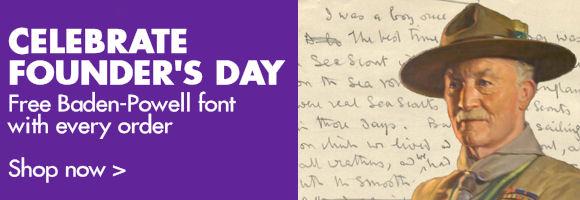 CELEBRATE
FOUNDER'S DAY
Free Baden-Powell font
with every order
Shop now >
I was a boy once
The best time
was
a Sea Scout
on the sea
England
were real Sea Scouts
Scouts
in those days.
sailing
on which we lived
all weathers, and we had
with the smooth